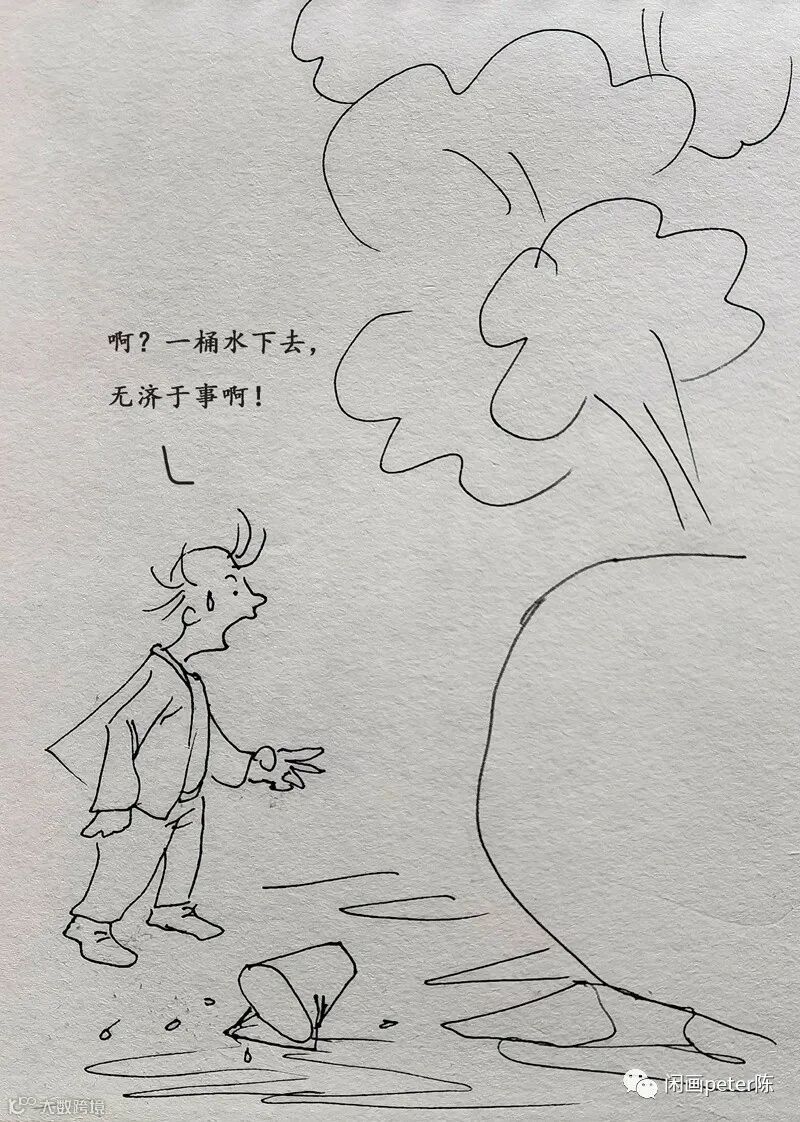 啊？一桶水下去，
无济于事啊！
闲画peter陈
大数跨境